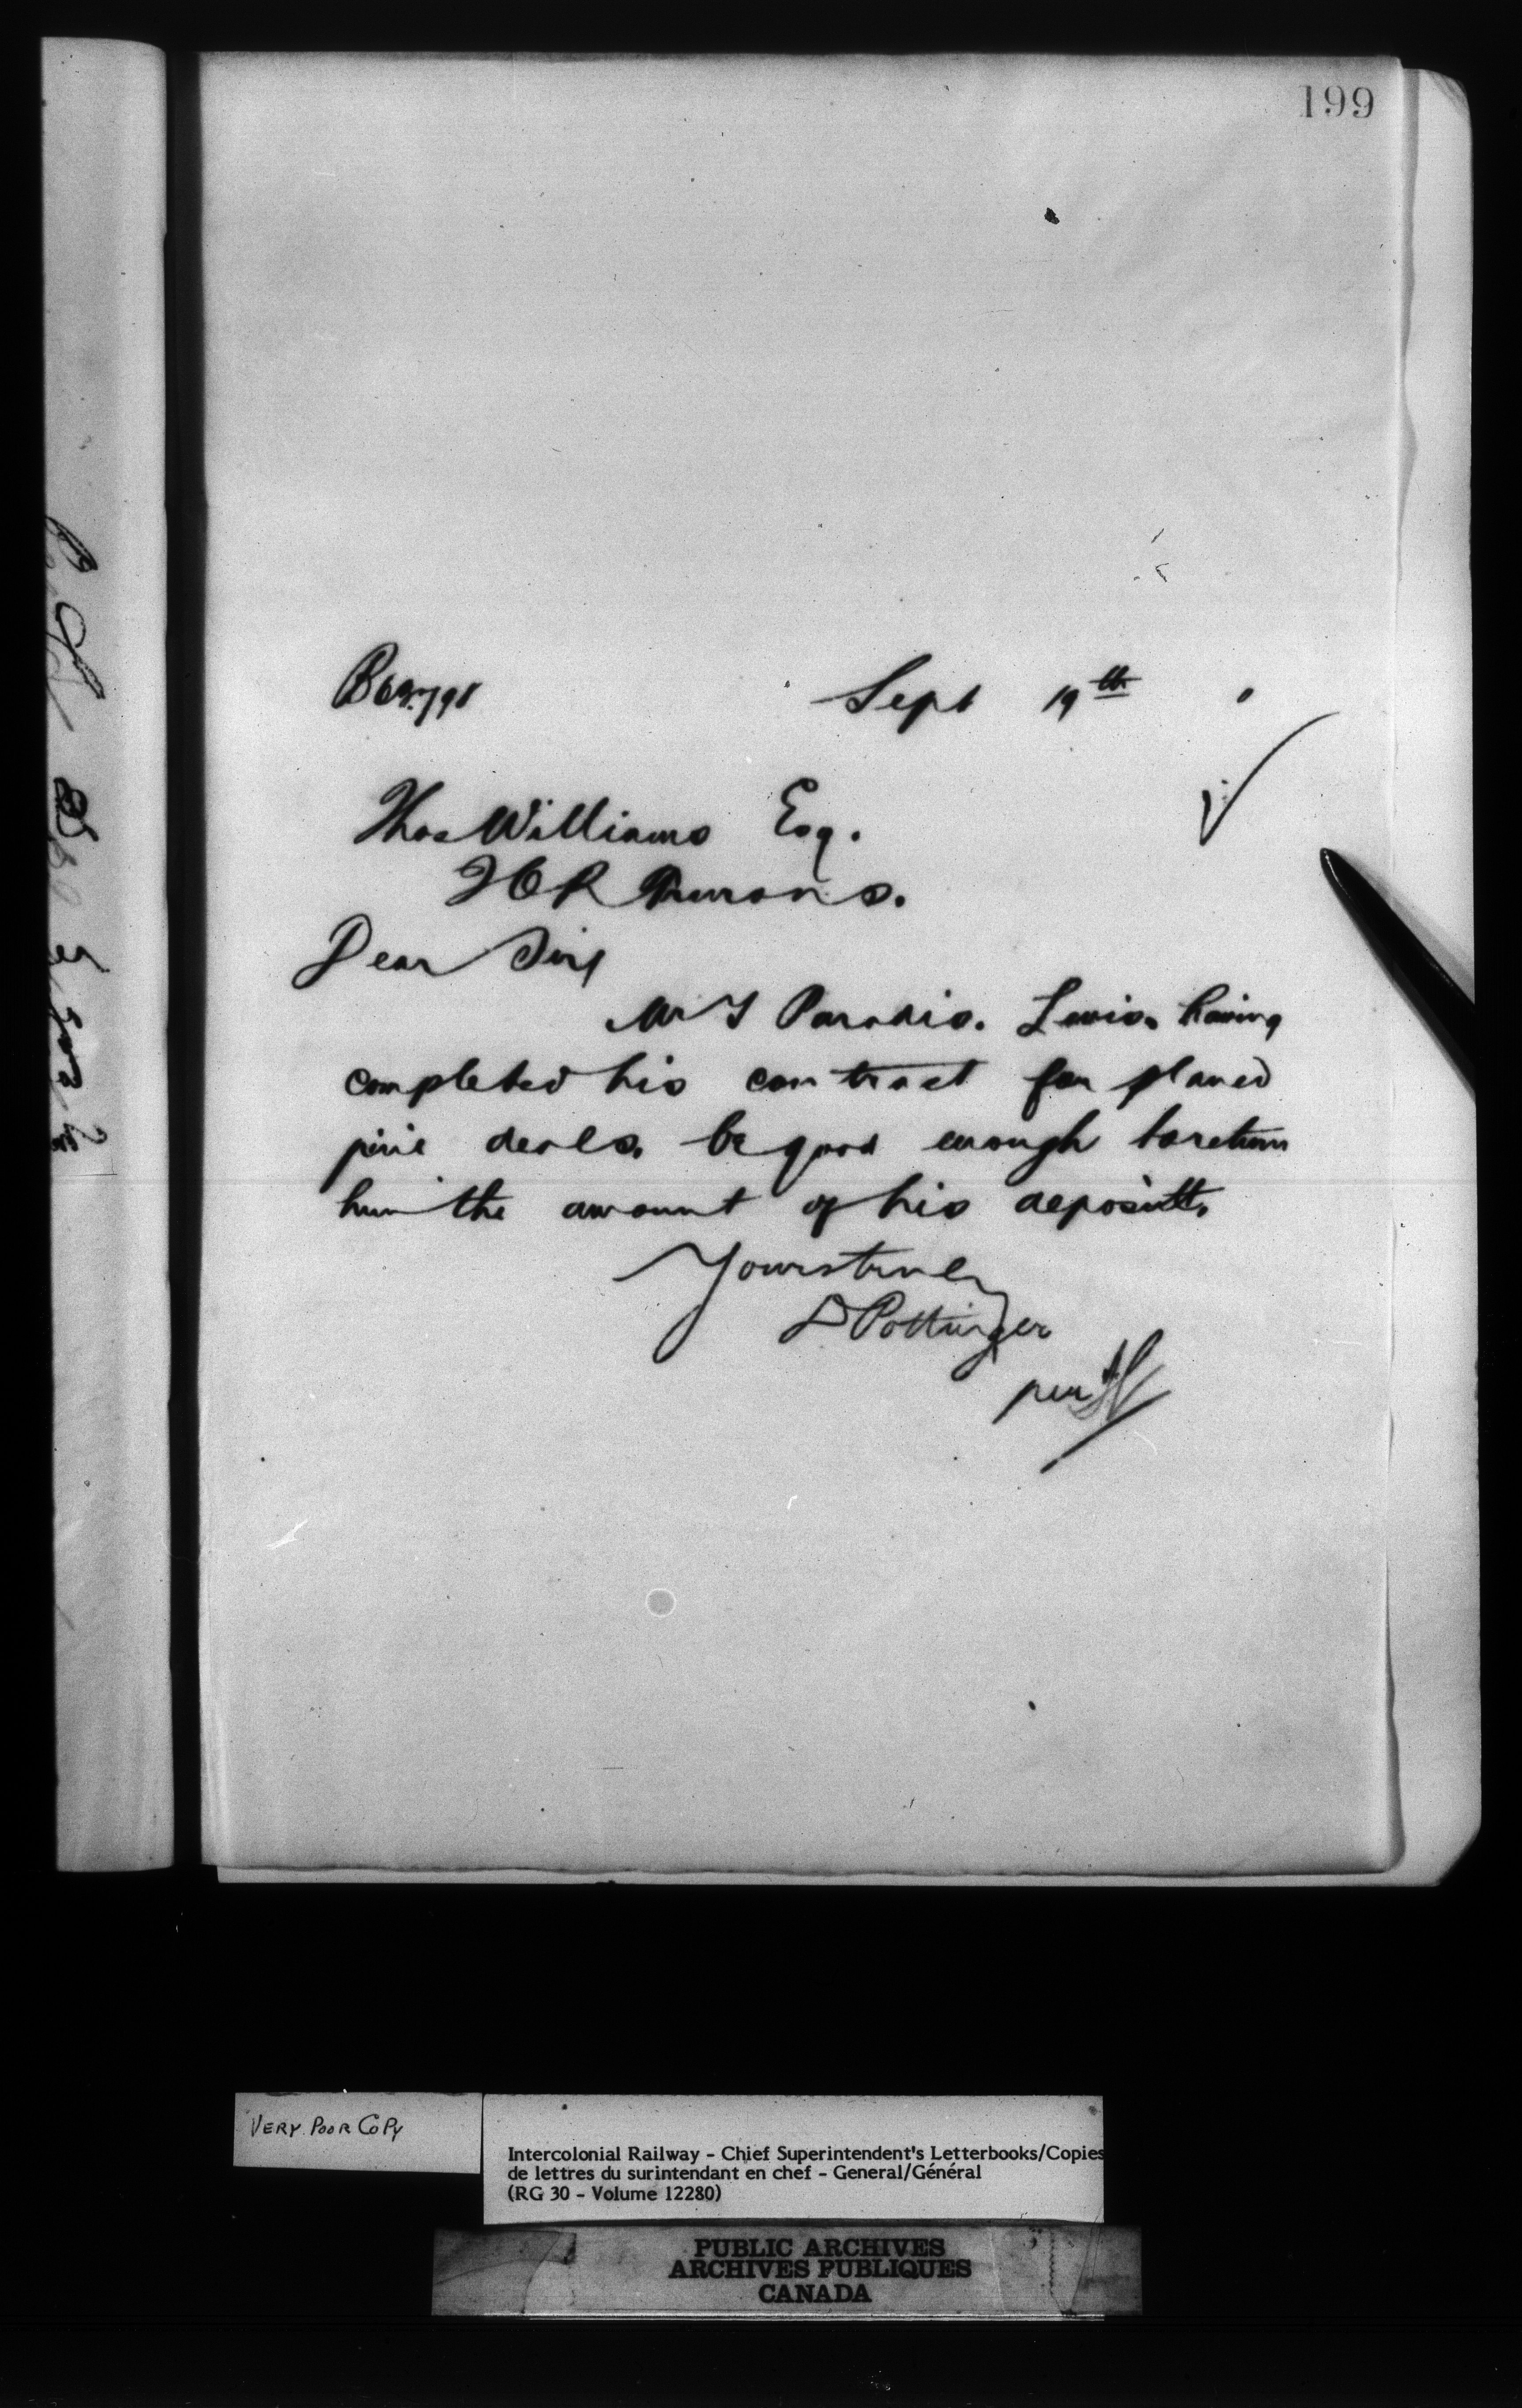 199
Sept 19th
Thos Williams Esq.
Dear Sir
Mr Paradis. Levis. having
completed his contract for planed
pine deals. be good enough to return
him the amount of his deposit.
Yours truly
D Pottinger
per
VERY POOR COPY
Intercolonial Railway - Chief Superintendent's Letterbooks/Copies
de lettres du surintendant en chef - General/Général
(RG 30 - Volume 12280)
PUBLIC ARCHIVES
ARCHIVES PUBLIQUES
CANADA